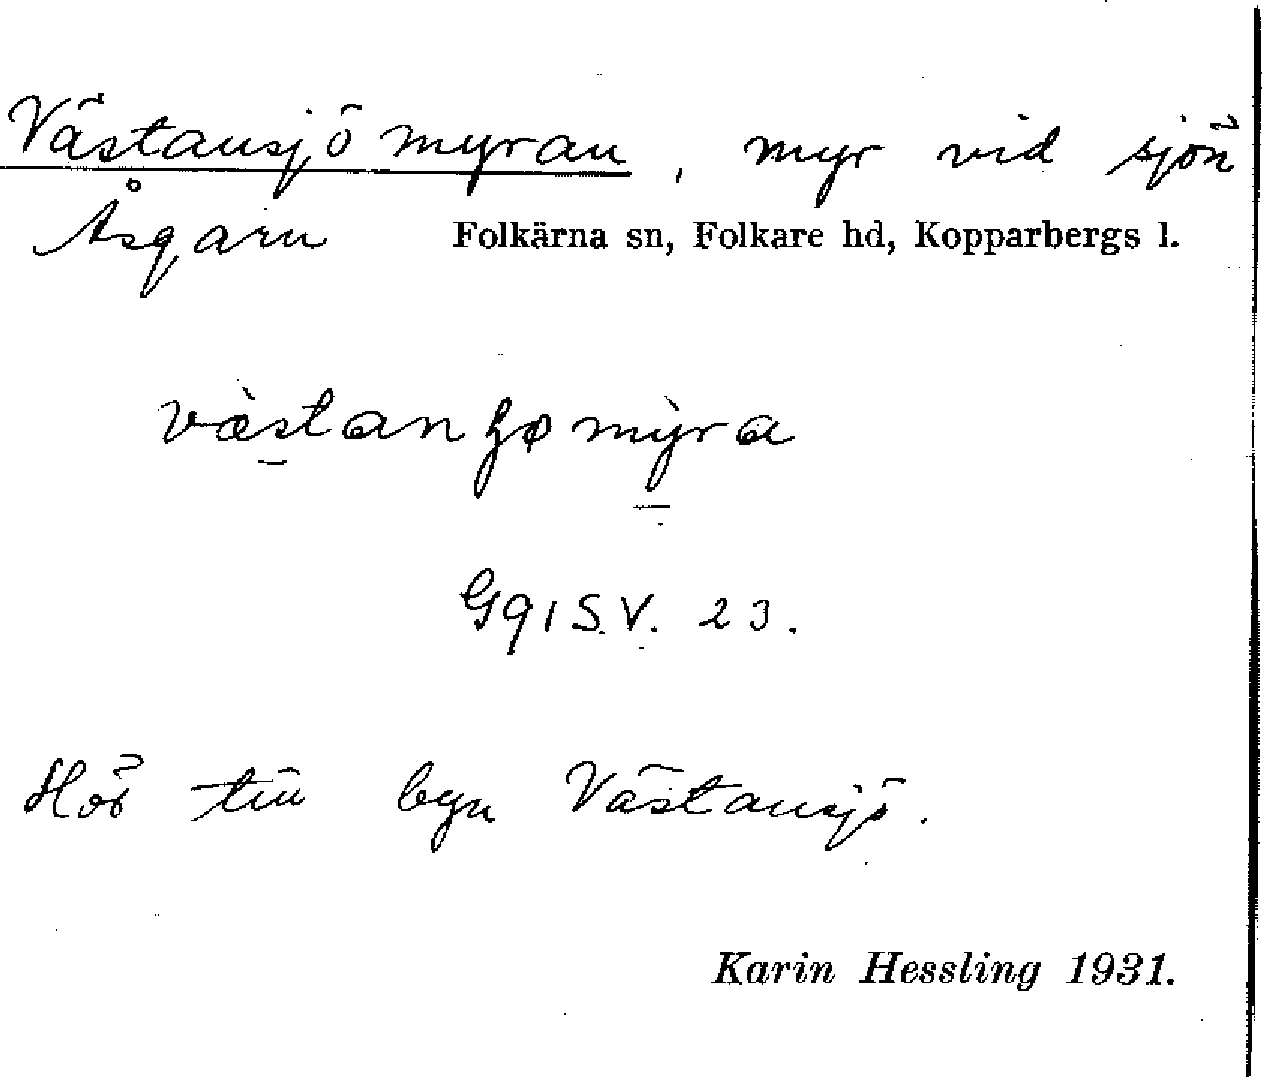 Västansjömyran, myr vid sjön
Åsgarn Folkärna sn, Folkare hd, Kopparbergs l.
Gg1 S.V. 23.
Hör till byn Västansjö.
Karin Hessling 1931.